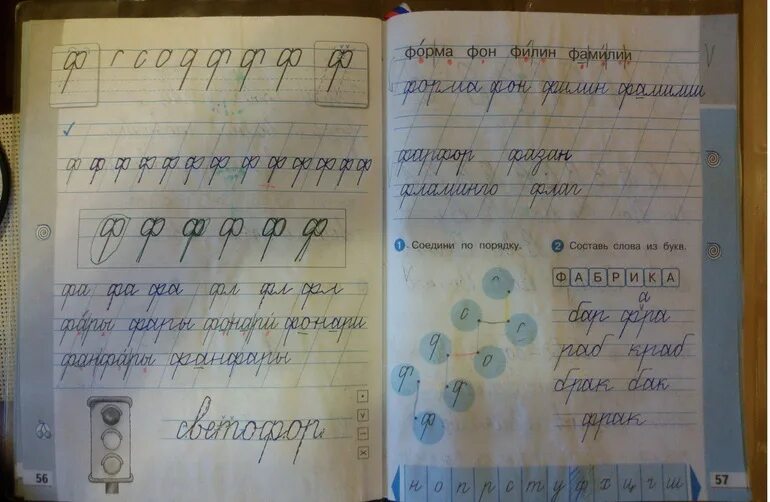 ф г с о q ф ф ф ф
ф ф ф ф ф ф ф ф ф ф ф ф ф
ф ф ф ф ф ф
фа фа фа фл фл фл
фары фары фонари фонари
фанфары фанфары
светофор
56
форма фон филин фамилии
форма фон филин фамилии
фарфор фазан
фламинго флаг
1 Соедини по порядку.
с
о с
q о
ф ф
ф
2 Составь слова из букв.
ФАБРИКА
а
бар фра
раб краб
брак бак
фрак
н о п р о т у ф х ц ч ш
57